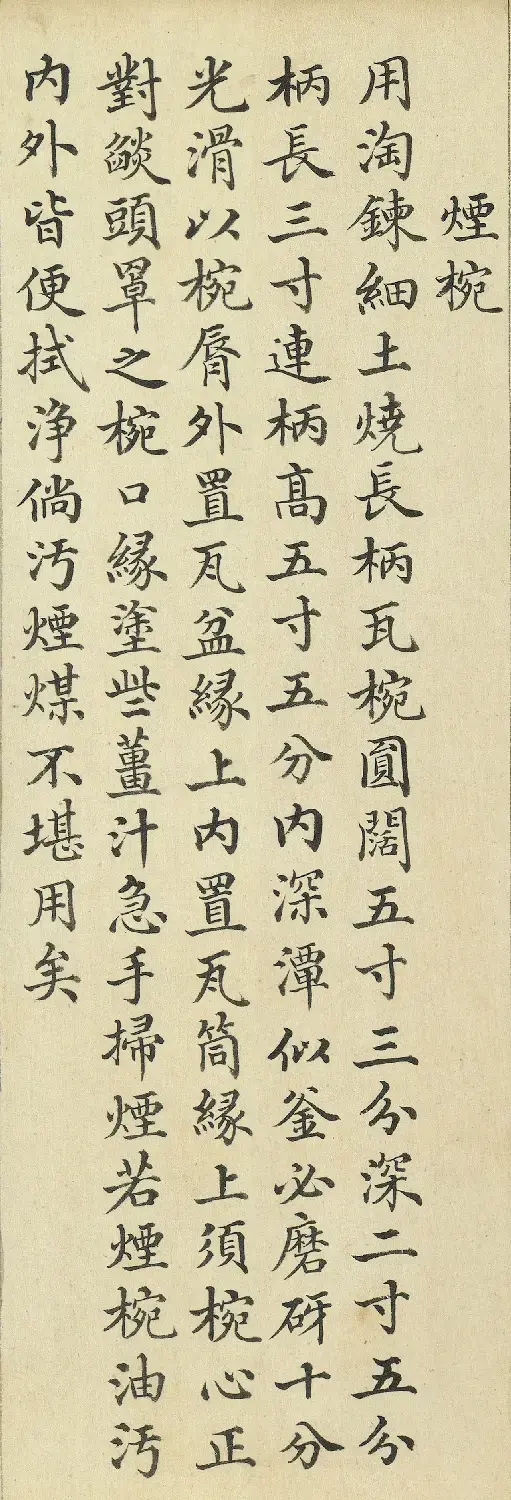 煙椀
用淘鍊細土燒長柄瓦椀圓闊五寸三分深二寸五分
柄長三寸連柄髙五寸五分内深潭似釜必磨砑十分
光滑以椀脣外置瓦盆縁上内置瓦筒縁上須椀心正
對燄頭罩之椀口縁塗些薑汁急手掃煙若煙椀油汚
内外皆便拭净倘汚煙煤不堪用矣